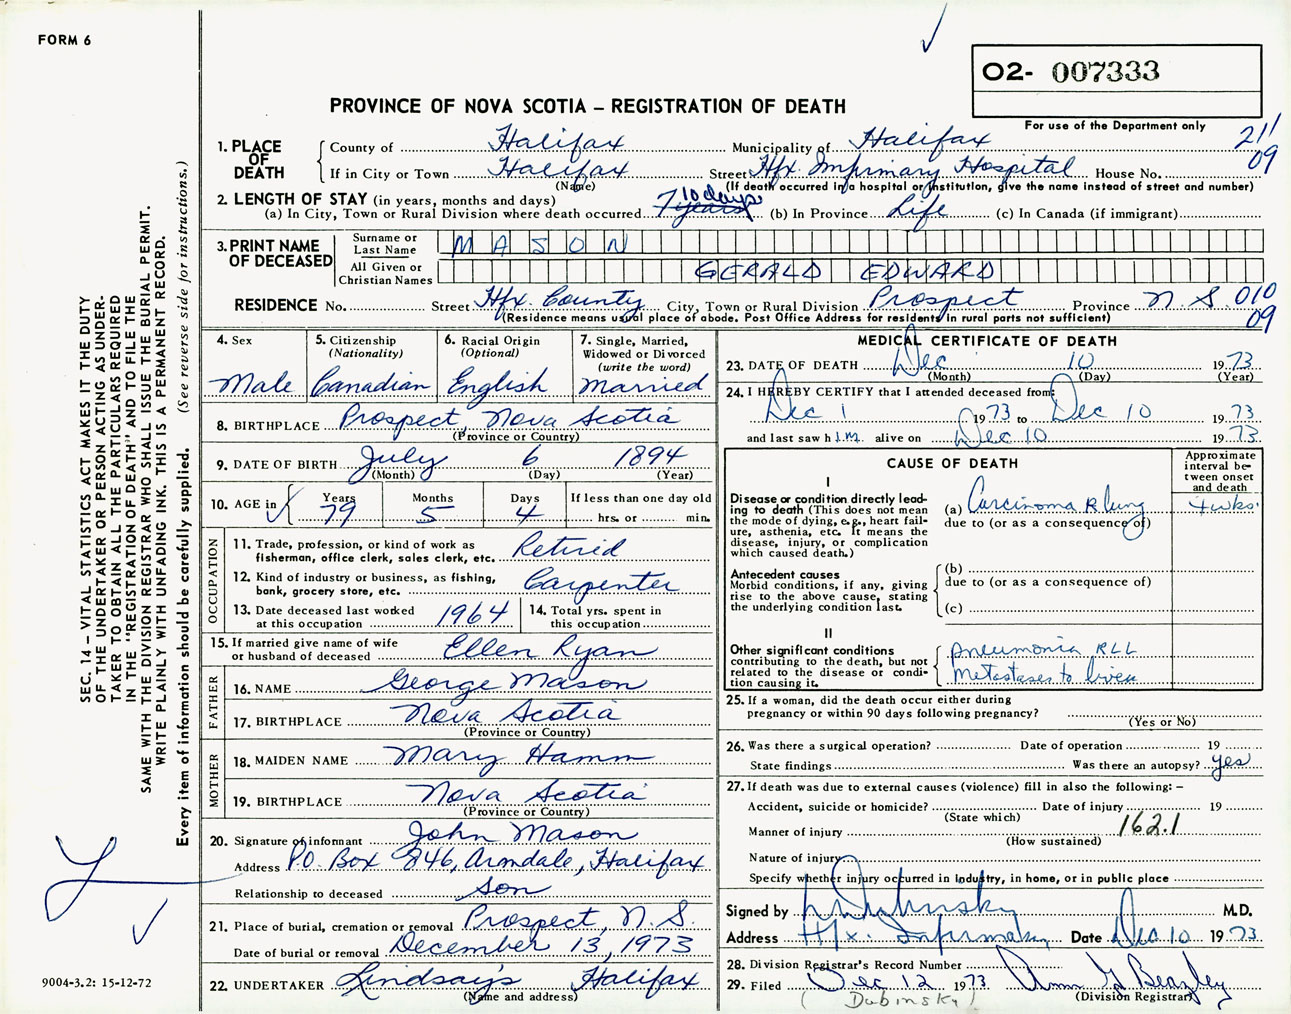 FORM 6
O2- 007333
For use of the Department only
PROVINCE OF NOVA SCOTIA – REGISTRATION OF DEATH
211
09
1. PLACE OF DEATH
County of Halifax Municipality of Halifax
If in City or Town Halifax Street Hfx Infirmary Hospital House No.
(Name) (If death occurred in a hospital or institution, give the name instead of street and number)
2. LENGTH OF STAY (in years, months and days)
(a) In City, Town or Rural Division where death occurred 7 years 10 days (b) In Province Life (c) In Canada (if immigrant)
3. PRINT NAME OF DECEASED
Surname or Last Name MASON
All Given or Christian Names GERALD EDWARD
RESIDENCE No. Street Hfx County City, Town or Rural Division Prospect Province N.S. 010
09
(Residence means usual place of abode. Post Office Address for residents in rural parts not sufficient)
4. Sex
Male
5. Citizenship (Nationality)
Canadian
6. Racial Origin (Optional)
English
7. Single, Married, Widowed or Divorced (write the word)
Married
8. BIRTHPLACE Prospect, Nova Scotia
(Province or Country)
9. DATE OF BIRTH July 6 1894
(Month) (Day) (Year)
10. AGE in
Years Months Days If less than one day old
79 5 4 hrs. or min.
OCCUPATION
11. Trade, profession, or kind of work as
fisherman, office clerk, sales clerk, etc. Retired
12. Kind of industry or business, as fishing,
bank, grocery store, etc. Carpenter
13. Date deceased last worked
at this occupation 1964
14. Total yrs. spent in
this occupation
15. If married give name of wife
or husband of deceased Ellen Ryan
FATHER
16. NAME George Mason
17. BIRTHPLACE Nova Scotia
(Province or Country)
MOTHER
18. MAIDEN NAME Mary Hamm
19. BIRTHPLACE Nova Scotia
(Province or Country)
20. Signature of informant John Mason
Address P.O. Box 846, Armdale, Halifax
Relationship to deceased Son
21. Place of burial, cremation or removal Prospect, N.S.
Date of burial or removal December 13, 1973
22. UNDERTAKER Lindsay's Halifax
(Name and address)
MEDICAL CERTIFICATE OF DEATH
23. DATE OF DEATH Dec 10 1973
(Month) (Day) (Year)
24. I HEREBY CERTIFY that I attended deceased from:
Dec 1 1973 to Dec 10 1973
and last saw him alive on Dec 10 1973
CAUSE OF DEATH
Approximate interval between onset and death
I
Disease or condition directly leading to death (This does not mean
the mode of dying, e.g., heart failure, asthenia, etc. It means the
disease, injury, or complication
which caused death.)
(a) Carcinoma R lung 4 wks.
due to (or as a consequence of)
Antecedent causes
Morbid conditions, if any, giving
rise to the above cause, stating
the underlying condition last.
(b)
due to (or as a consequence of)
(c)
II
Other significant conditions
contributing to the death, but not
related to the disease or condition causing it.
pneumonia RLL
Metastases to liver
25. If a woman, did the death occur either during
pregnancy or within 90 days following pregnancy?
(Yes or No)
26. Was there a surgical operation? Date of operation 19
State findings Was there an autopsy? yes
27. If death was due to external causes (violence) fill in also the following: –
Accident, suicide or homicide? Date of injury 19
(State which)
Manner of injury 162.1
(How sustained)
Nature of injury
Specify whether injury occurred in industry, in home, or in public place
Signed by Dubinsky M.D.
Address Hfx. Infirmary Date Dec 10 1973
28. Division Registrar's Record Number
29. Filed Dec 12 1973 Ann G Beazley
(Dubinsky) (Division Registrar)
SEC. 14 – VITAL STATISTICS ACT MAKES IT THE DUTY
OF THE UNDERTAKER OR PERSON ACTING AS UNDERTAKER TO OBTAIN ALL THE PARTICULARS REQUIRED
IN THE "REGISTRATION OF DEATH" AND TO FILE THE
SAME WITH THE DIVISION REGISTRAR WHO SHALL ISSUE THE BURIAL PERMIT.
WRITE PLAINLY WITH UNFADING INK. THIS IS A PERMANENT RECORD.
Every item of information should be carefully supplied. (See reverse side for instructions.)
9004-3.2: 15-12-72